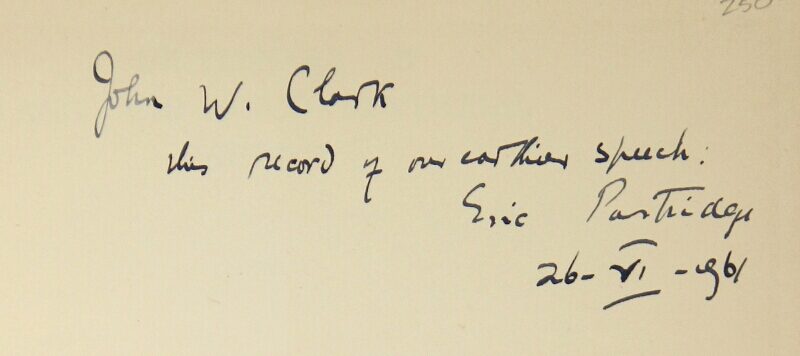 250
John W. Clark
this record of our earthier speech:
Eric Partridge
26-VI-1961